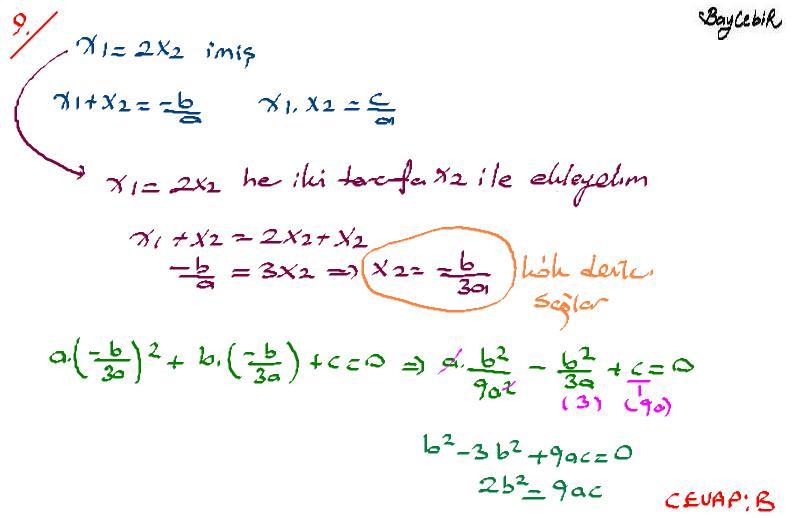 9.
BayCebiR
x1 = 2x2 imiş
x1+x2 = -b/a    x1.x2 = c/a
x1 = 2x2 he iki tarafa x2 ile ekleyelim
x1+x2 = 2x2+x2
-b/a = 3x2 => x2 = -b/3a    kök denk. sağlar
a.(-b/3a)^2 + b.(-b/3a) + c = 0 => a.b^2/9a^2 - b^2/3a + c/1 = 0
(3) (9a)
b^2-3b^2+9ac=0
2b^2 = 9ac
CEVAP: B